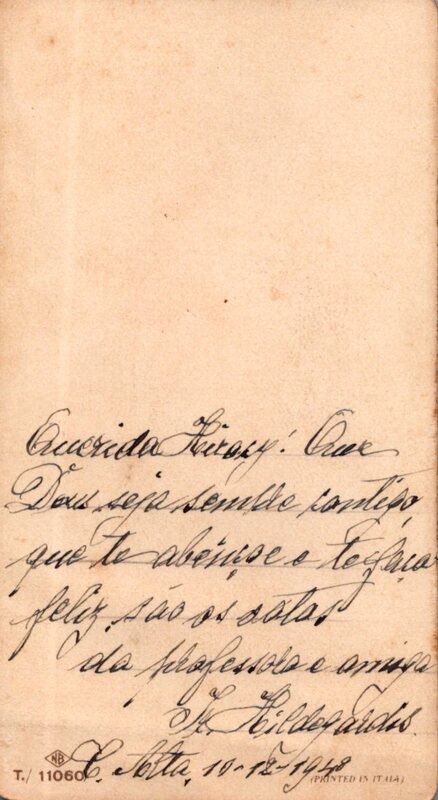 Querida Hiracy! Que
Deus seja sempre contigo,
que te abençoe e te faça
feliz, são os votos
da professora e amiga
Ir. Hildegardis.
C. Alta, 10-12-1948
NB
T./11060
(PRINTED IN ITALY)